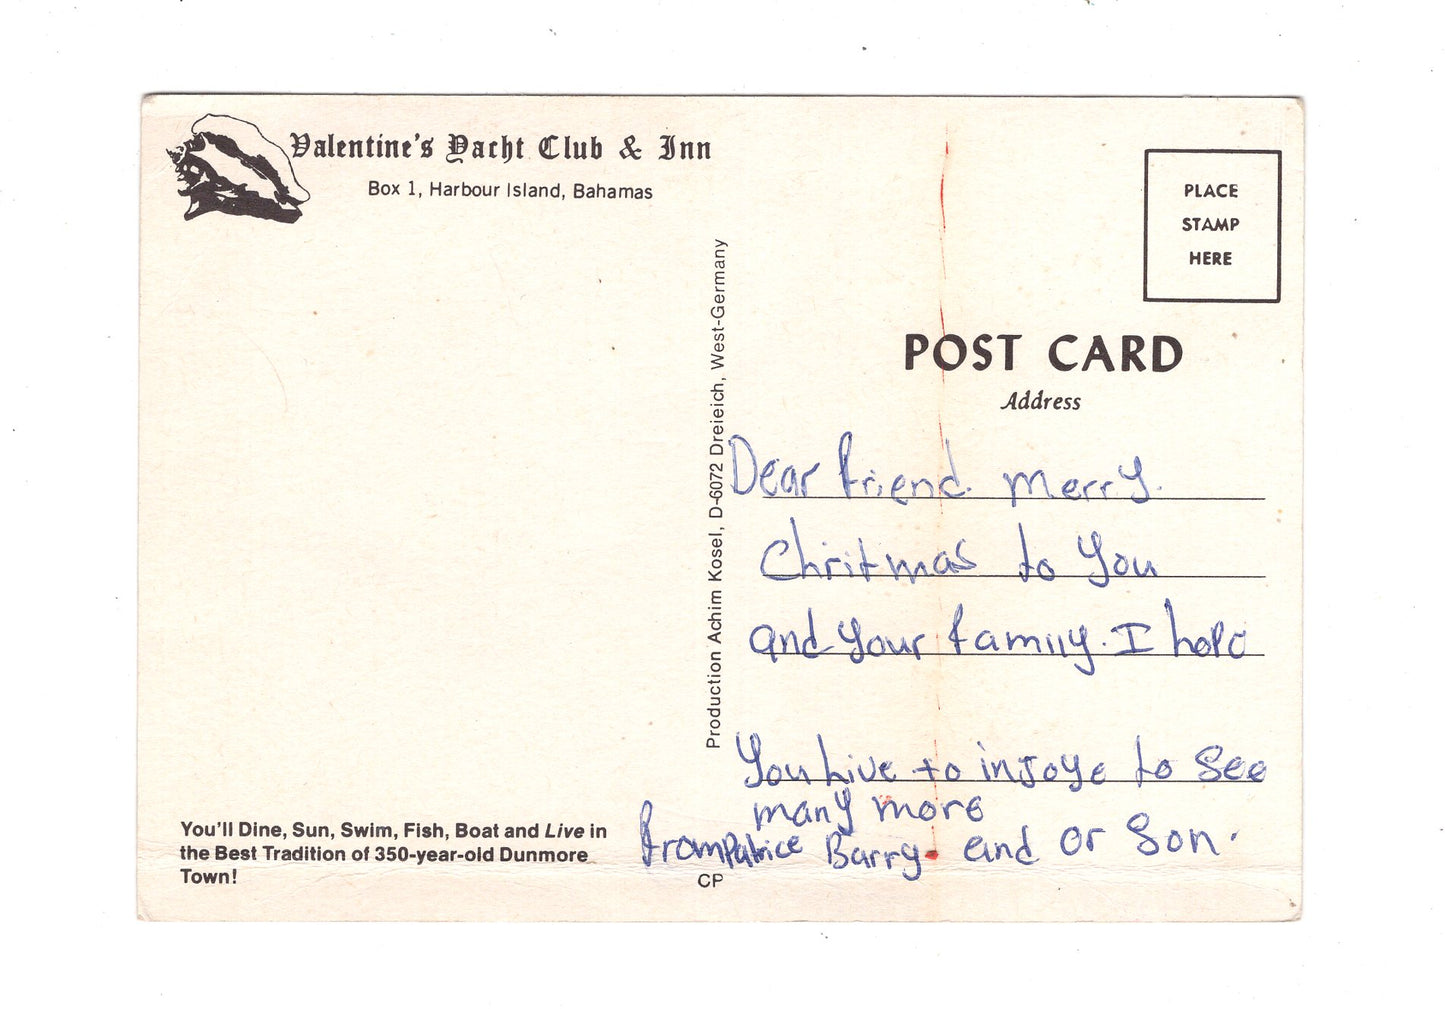 Valentine's Yacht Club & Inn
Box 1, Harbour Island, Bahamas
PLACE
STAMP
HERE
POST CARD
Address
Dear friend. merry.
Chritmas to you
and your family. I hope
you live to injoye to see
many more
from Patrice Barry. and or Son.
Production Achim Kosel, D-6072 Dreieich, West-Germany
You'll Dine, Sun, Swim, Fish, Boat and Live in
the Best Tradition of 350-year-old Dunmore
Town!
CP